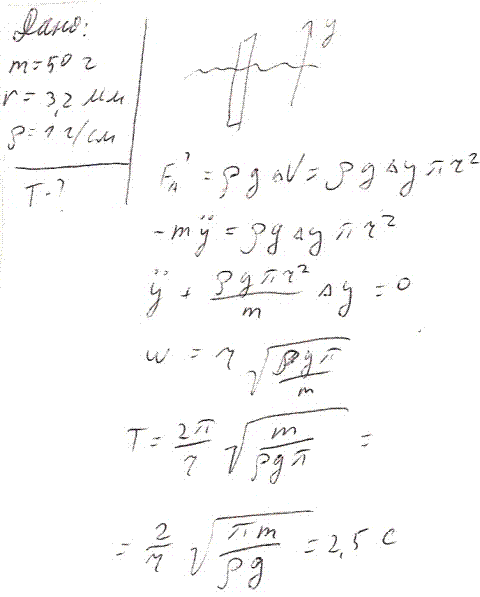 Дано:
m = 50 г
r = 3,2 мм
ρ = 1 г/см
T - ?
y
F_A' = ρ g ΔV = ρ g Δy π r²
- m ÿ = ρ g Δy π r²
ÿ + (ρ g π r²)/m Δy = 0
ω = r √(ρ g π / m)
T = 2π/r √(m / ρ g π) =
= 2/r √(π m / ρ g) = 2,5 с